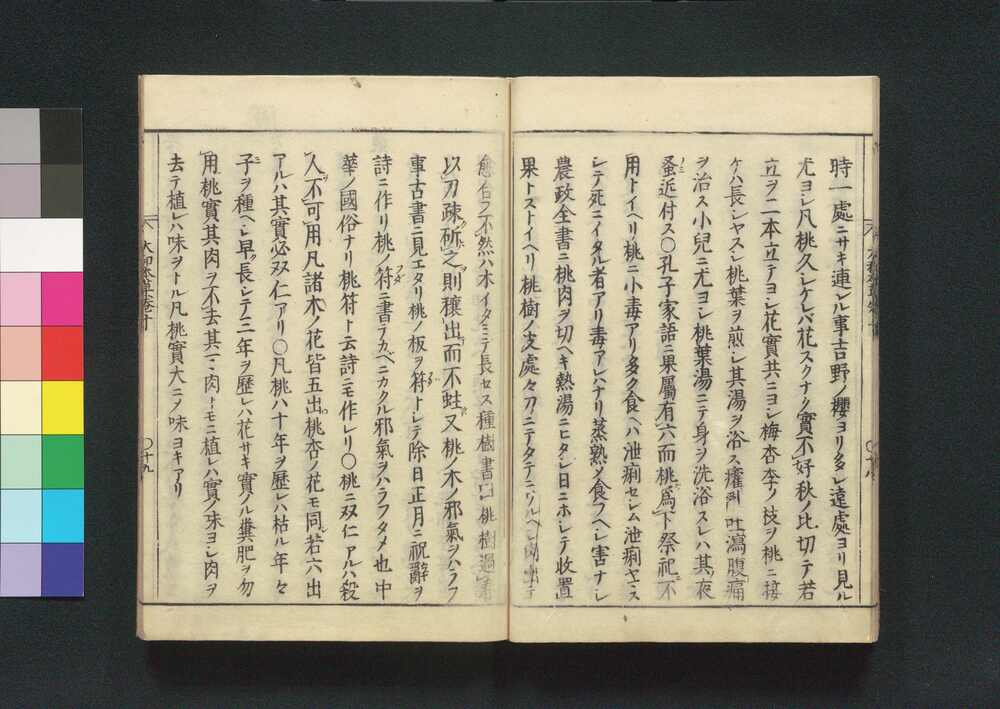 時一處ニサキ連レル事吉野ノ櫻ヨリ多シ遠處ヨリ見ル
尤ヨシ凡桃久シケレバ花スクナク實不好秋ノ比切テ若
立ヲ二本立テヨシ花實共ニヨシ梅杏李ノ枝ヲ桃ニ接
ケハ長シヤスシ桃葉ヲ煎シ其湯ヲ浴ス癨乱吐瀉腹痛
ヲ治ス小兒ニ尤ヨシ桃葉湯ニテ身ヲ洗浴スレハ其夜
蚤近付ス〇孔子家語ニ果屬有六而桃為下祭祀不
用トイヘリ桃ニ小毒アリ多ク食ヘハ泄痢セシム泄痢ヤマス
シテ死ニイタル者アリ毒アレハナリ蒸熟メ食フヘシ害ナシ
農政全書ニ桃肉ヲ切ヘキ熱湯ニヒタシ日ニホシテ收置
果トストイヘリ桃樹ノ皮處々刀ニテタテニワルヘシ肉出テ
愈合フ不然ハ木イタミテ長セス種樹書曰桃樹過春
以刀疎斫之則穰出而不蛀又桃ノ木ノ邪氣ヲハラフ
事古書ニ見エタリ桃ノ板ヲ符トシテ除日正月ニ祝辭ヲ
詩ニ作リ桃ノ符ニ書テカベニカクル邪氣ヲハラフタメ也中
華ノ國俗ナリ桃符ト云詩ニモ作レリ〇桃ニ双仁アルハ殺
人不可用凡諸木ノ花皆五出桃杏ノ花モ同若六出
アルハ其實必双仁アリ〇凡桃ハ十年ヲ歷レハ枯ル年々
子ヲ種ヘシ早ク長シテ三年ヲ歷レハ花サキ實ノル糞肥ヲ勿
用桃實其肉ヲ不去其マヽ肉トモニ植レハ實ノ味ヨシ肉ヲ
去テ植レハ味ヲトル凡桃實大ニメ味ヨキアリ
大和本草卷十
〇十九